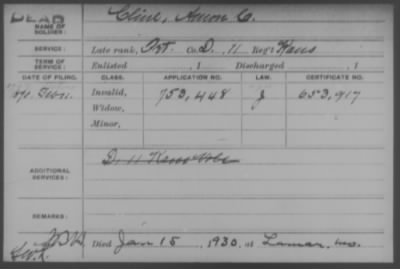 DEAD
NAME OF SOLDIER: Cline, Amon C.
SERVICE: Late rank, Pvt. Co. D, 11 Reg't Kans
TERM OF SERVICE: Enlisted , 1 Discharged , 1
DATE OF FILING. CLASS. APPLICATION NO. LAW. CERTIFICATE NO.
Invalid, 753,448 J 653,917
Widow,
Minor,
ADDITIONAL SERVICES: D. 11
REMARKS:
Died Jan 15, 1930, at Lamar, Mo.